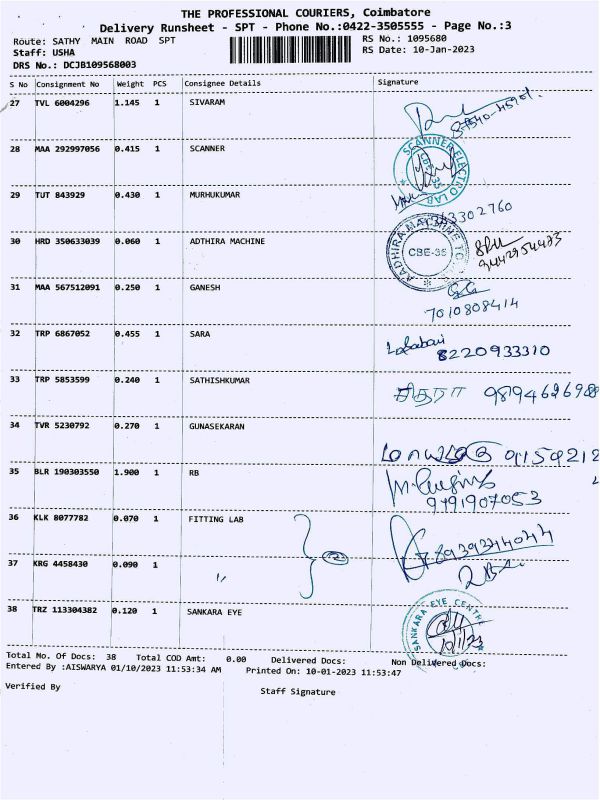 THE PROFESSIONAL COURIERS, Coimbatore
Delivery Runsheet - SPT - Phone No.:0422-3505555 - Page No.:3
Route: SATHY MAIN ROAD SPT RS No.: 1095680
Staff: USHA RS Date: 10-Jan-2023
DRS No.: DCJB109568003
S No Consignment No Weight PCS Consignee Details Signature
27 TVL 6004296 1.145 1 SIVARAM
28 MAA 292997056 0.415 1 SCANNER SCANNER ELECTRO LAB CBE-35
29 TUT 843929 0.430 1 MURHUKUMAR
30 HRD 350633039 0.060 1 ADTHIRA MACHINE AADHIRA MACHINE CBE-35
31 MAA 567512091 0.250 1 GANESH 7010808414
32 TRP 6867052 0.455 1 SARA 8220933310
33 TRP 5853599 0.240 1 SATHISHKUMAR
34 TVR 5230792 0.270 1 GUNASEKARAN
35 BLR 190303550 1.900 1 RB 9791907053
36 KLK 8077782 0.070 1 FITTING LAB
37 KRG 4458430 0.090 1 "
38 TRZ 113304382 0.120 1 SANKARA EYE SANKARA EYE CENTRE 10/1/23
Total No. Of Docs: 38 Total COD Amt: 0.00 Delivered Docs: Non Delivered Docs:
Entered By :AISWARYA 01/10/2023 11:53:34 AM Printed On: 10-01-2023 11:53:47
Verified By Staff Signature